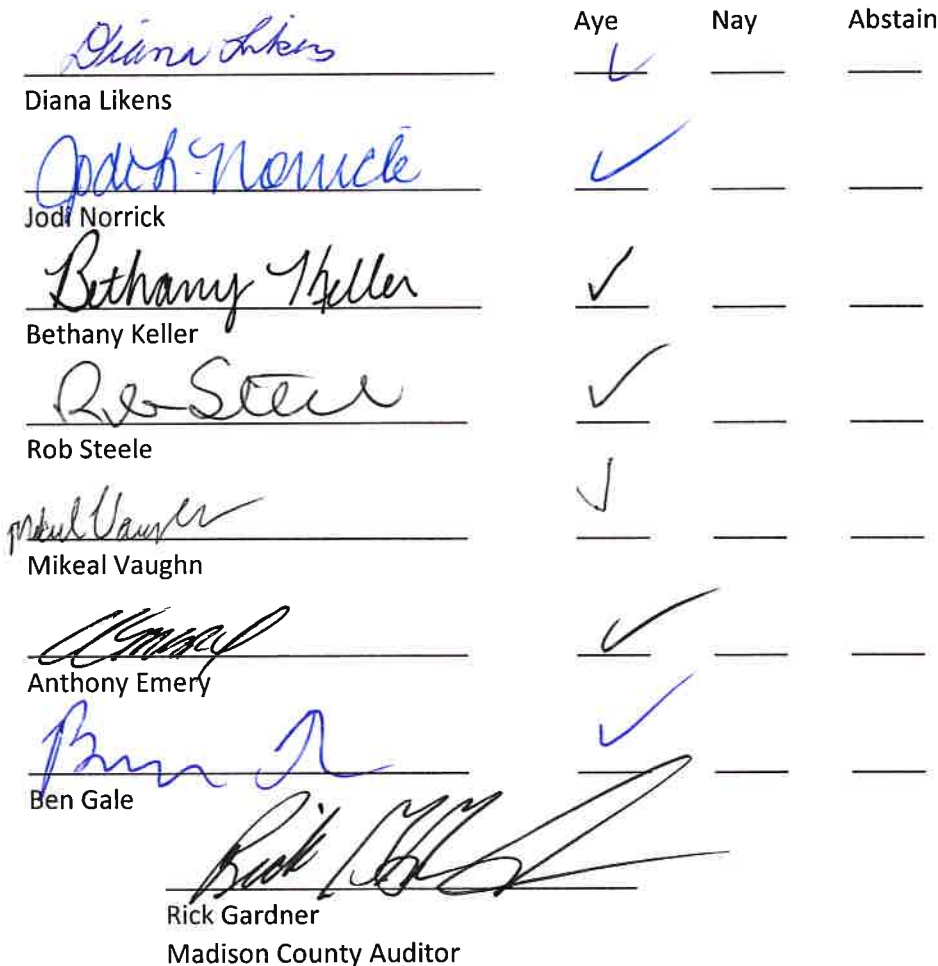 Aye Nay Abstain
Diana Likens
Diana Likens
Jodi L. Norrick
Jodi Norrick
Bethany Keller
Bethany Keller
Rob Steele
Rob Steele
Mikeal Vaughn
Mikeal Vaughn
Anthony Emery
Ben Gale
Rick
Rick Gardner
Madison County Auditor